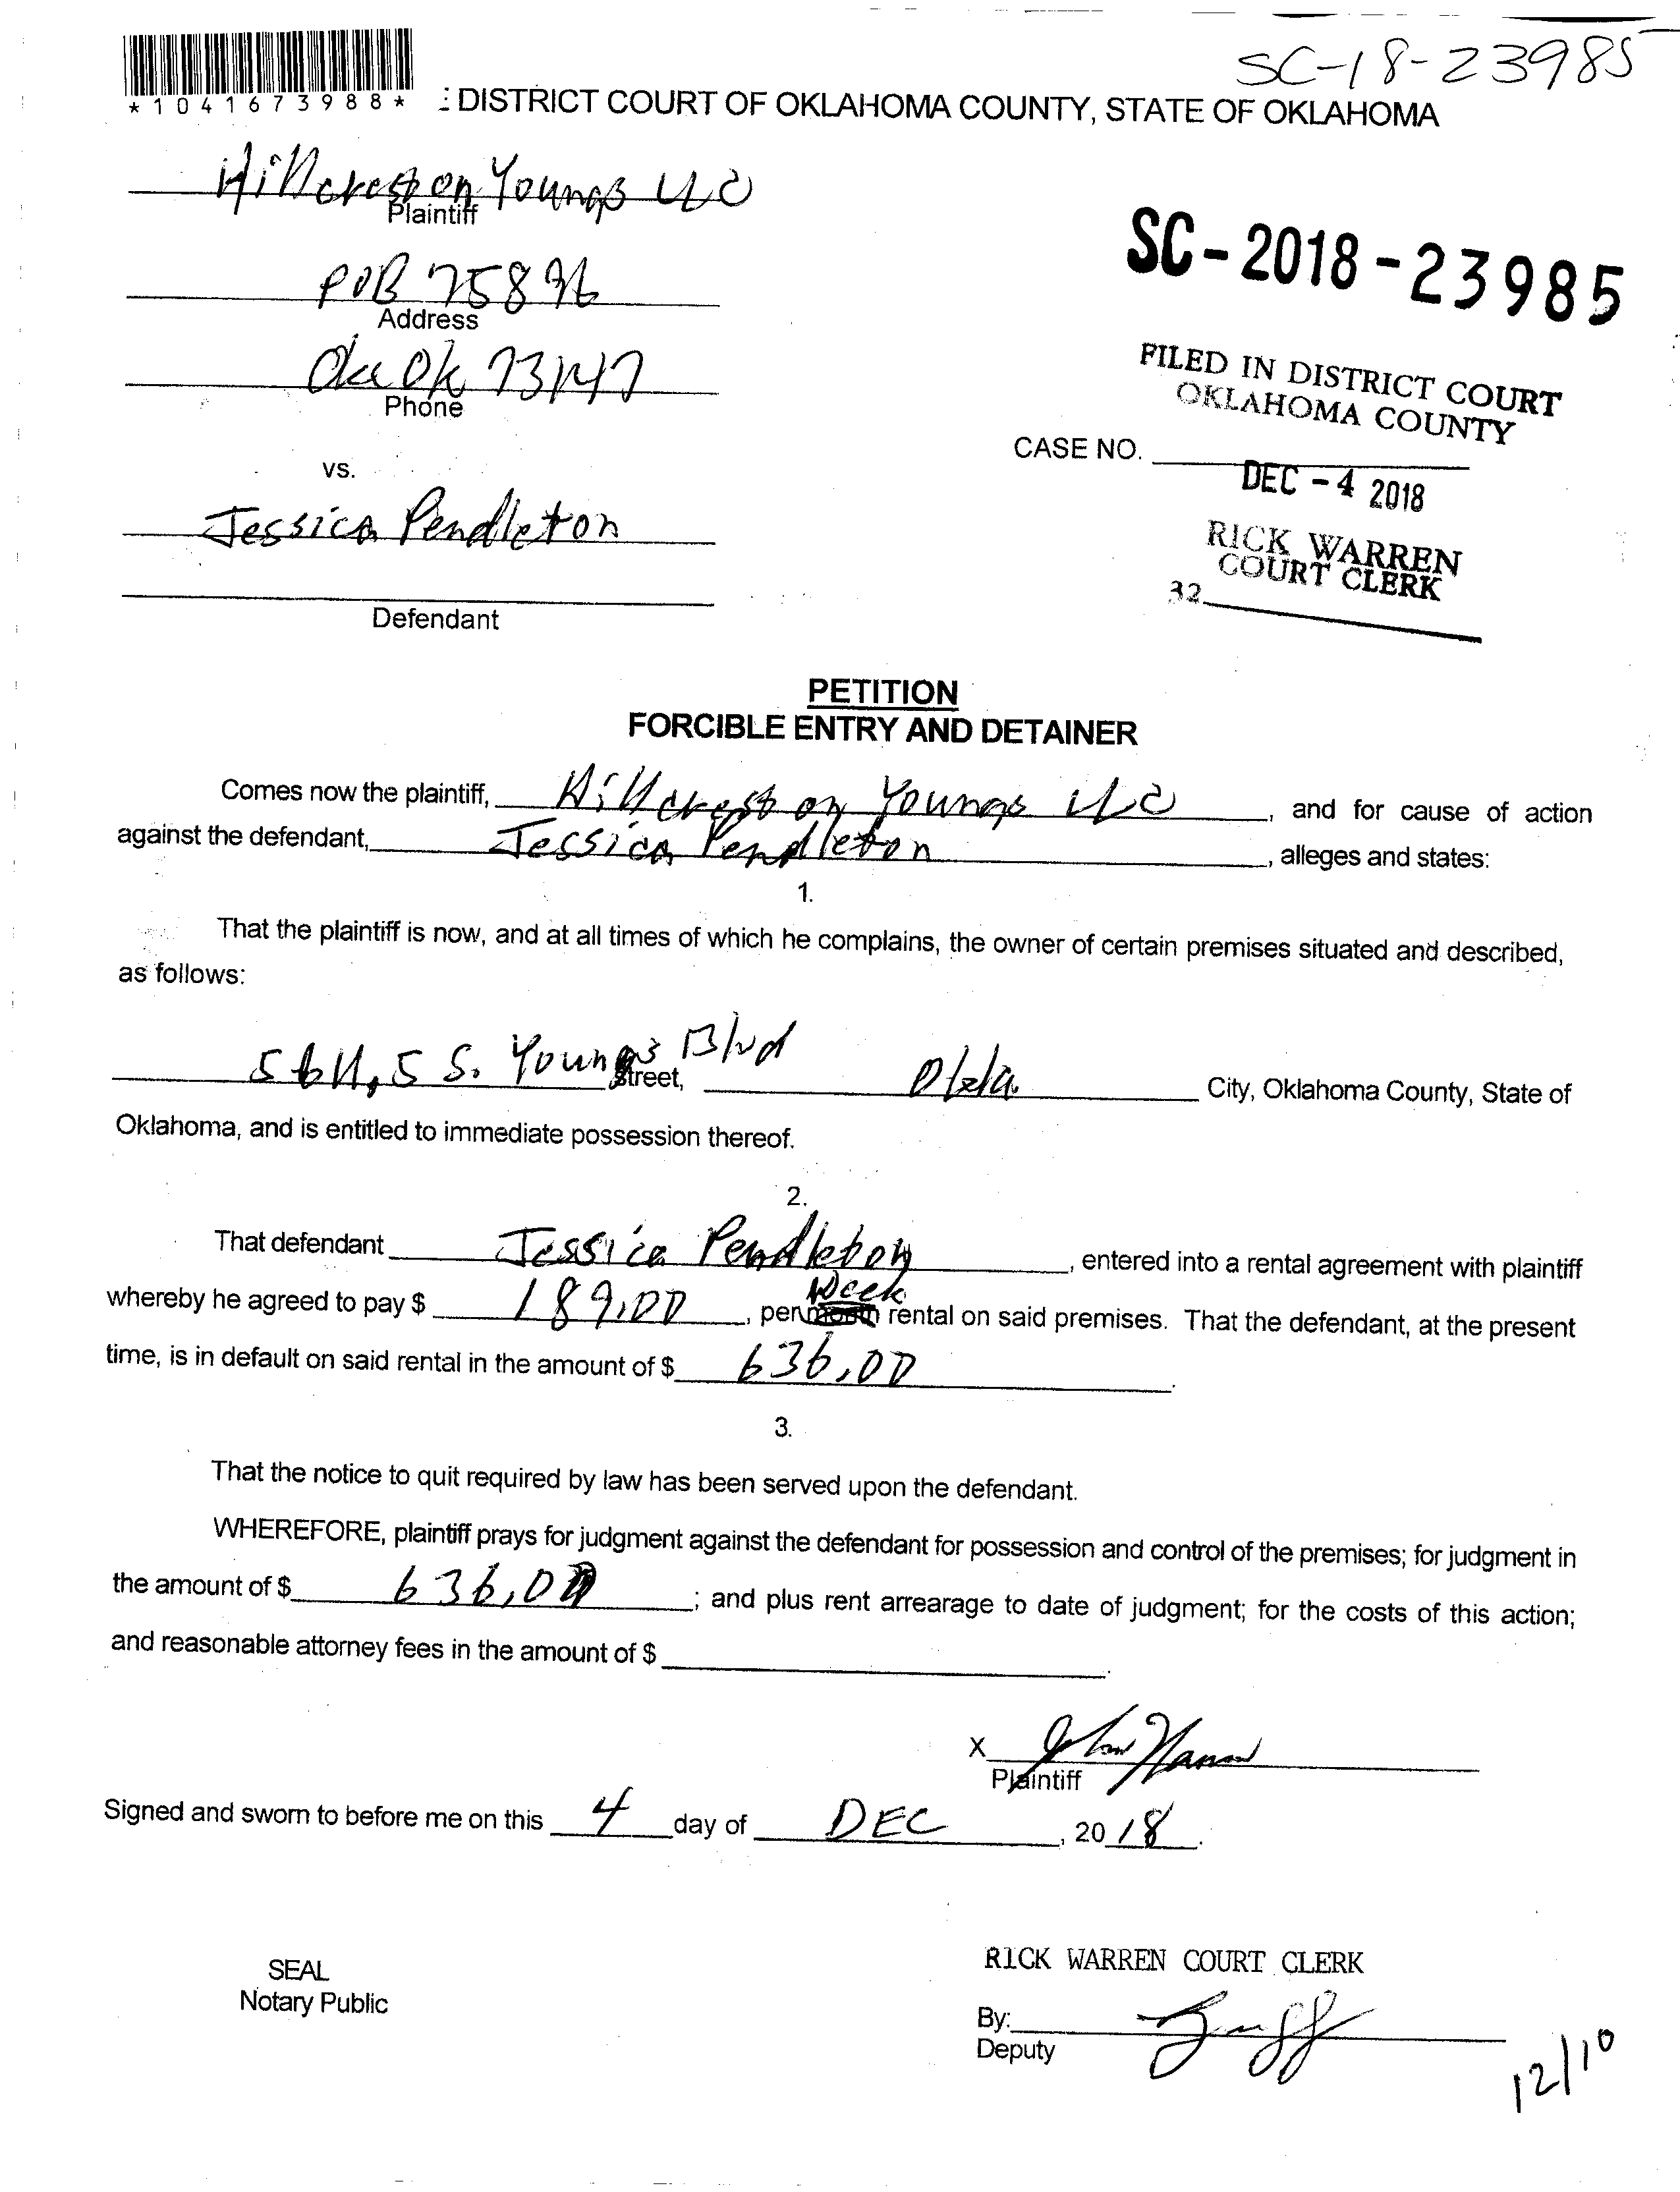 SC-18-23985
*1041673988*
: DISTRICT COURT OF OKLAHOMA COUNTY, STATE OF OKLAHOMA
Hillcrest on Youngs LLC
Plaintiff
POB 75896
Address
Okc Ok 73147
Phone
vs.
Jessica Pendleton
Defendant
SC-2018-23985
FILED IN DISTRICT COURT
OKLAHOMA COUNTY
CASE NO.
DEC -4 2018
RICK WARREN
COURT CLERK
32
PETITION
FORCIBLE ENTRY AND DETAINER
Comes now the plaintiff, Hillcrest on Youngs LLC, and for cause of action
against the defendant, Jessica Pendleton, alleges and states:
1.
That the plaintiff is now, and at all times of which he complains, the owner of certain premises situated and described,
as follows:
S. Youngs Blvd Street, Okla. City, Oklahoma County, State of
Oklahoma, and is entitled to immediate possession thereof.
2.
That defendant Jessica Pendleton, entered into a rental agreement with plaintiff
Week
whereby he agreed to pay $ 189.00, per month rental on said premises. That the defendant, at the present
time, is in default on said rental in the amount of $ 636.00.
3.
That the notice to quit required by law has been served upon the defendant.
WHEREFORE, plaintiff prays for judgment against the defendant for possession and control of the premises; for judgment in
the amount of $ 636.00; and plus rent arrearage to date of judgment; for the costs of this action;
and reasonable attorney fees in the amount of $ .
X John
Plaintiff
Signed and sworn to before me on this 4 day of DEC, 2018.
SEAL
Notary Public
RICK WARREN COURT CLERK
By:
Deputy
12/10